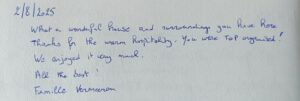 2/8/2025
What a wonderful house and surroundings you have here
Thanks for the warm hospitality. You were top organised!
We enjoyed it very much.
All the best!
Famille